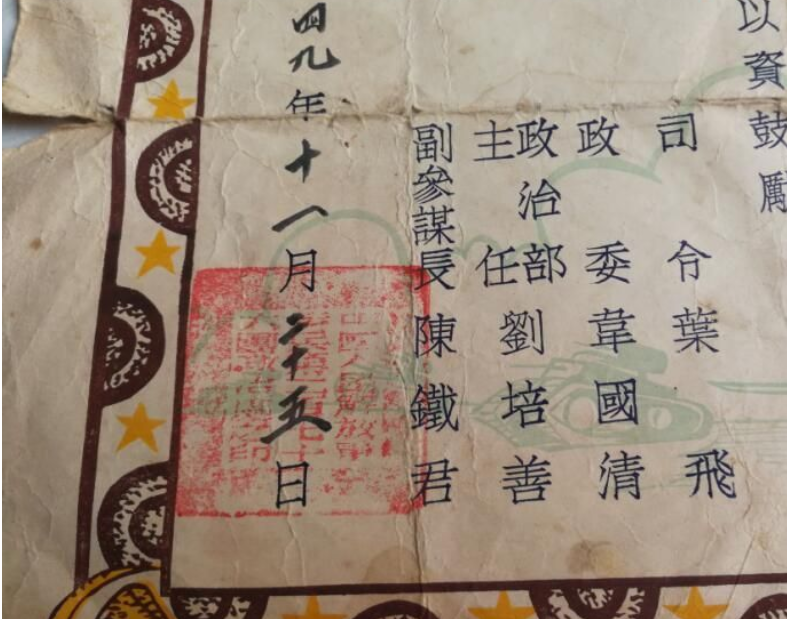 以資鼓勵
司令葉飛
政委韋國清
政治部主任劉培善
副參謀長陳鐵君
四九年十一月二十五日